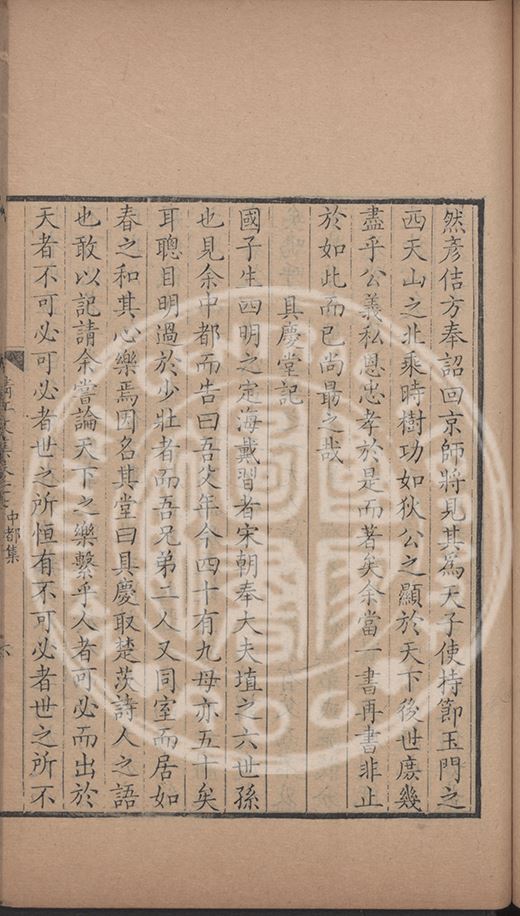 然彥佶方奉詔回京師將見其爲天子使持節玉門之
西天山之北乘時樹功如狄公之顯於天下後世庶幾
盡乎公義私恩忠孝於是而著矣余當一書再書非止
於如此而已尚勗之哉
具慶堂記
國子生四明之定海戴習者宋朝奉大夫埴之六世孫
也見余中都而告曰吾父年今四十有九母亦五十矣
耳聰目明過於少壯者而吾兄弟二人又同室而居如
春之和其心樂焉因名其堂曰具慶取楚茨詩人之語
也敢以記請余嘗論天下之樂繫乎人者可必而出於
天者不可必可必者世之所恒有不可必者世之所不
中都集